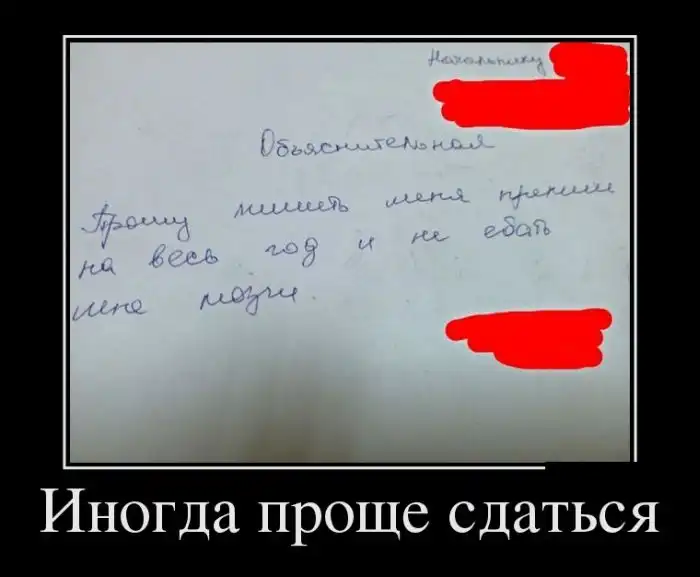 Начальнику
Объяснительная
Прошу лишить меня премии
на весь год и не ебать
мне мозги.
Иногда проще сдаться